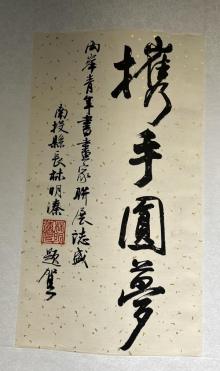 攜手圓夢
兩岸青年書畫家聯展誌盛
南投縣長林明溱
題賀